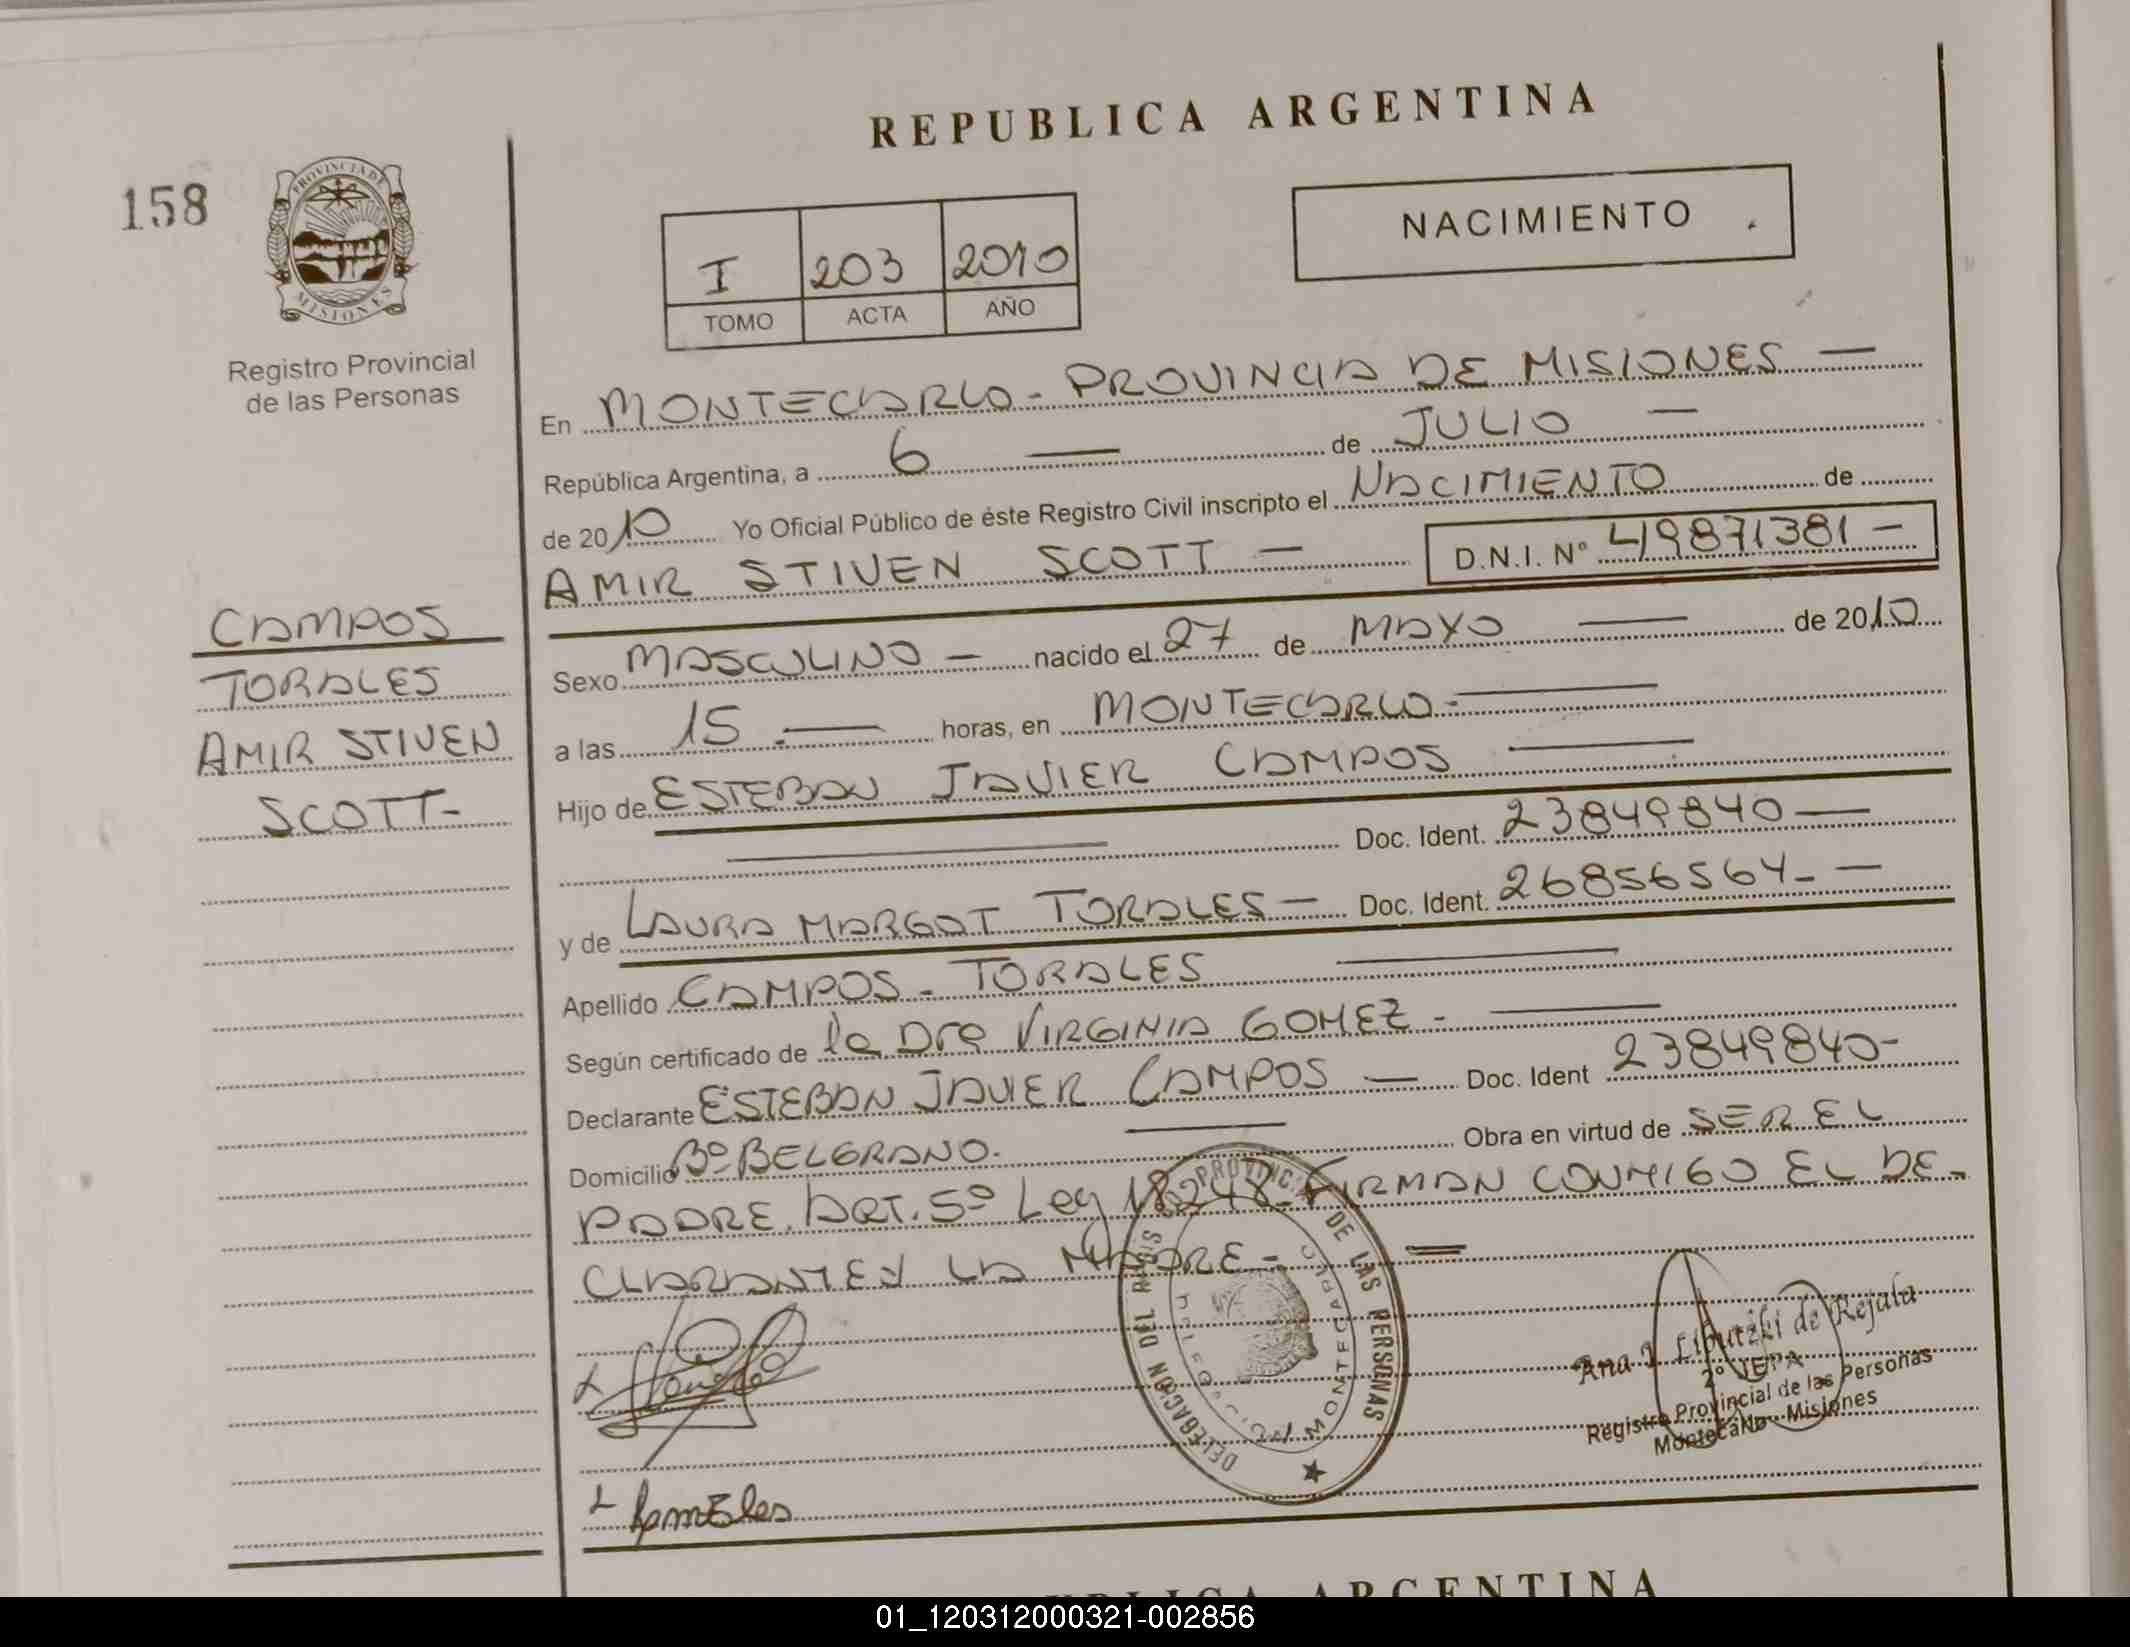 REPUBLICA ARGENTINA
158
PROVINCIA DE
MISIONES
Registro Provincial
de las Personas
NACIMIENTO
I 203 2010
TOMO ACTA AÑO
En MONTECARLO - PROVINCIA DE MISIONES —
República Argentina, a 6 — de JULIO —
de 2010 Yo Oficial Público de éste Registro Civil inscripto el NACIMIENTO de
AMIR STIVEN SCOTT — D.N.I. Nº 49871381 —
CAMPOS
TORALES
AMIR STIVEN
SCOTT-
Sexo MASCULINO — nacido el 27 de MAYO — de 2010
a las 15 . — horas, en MONTECARLO - —
Hijo de ESTEBAN JAVIER CAMPOS —
— Doc. Ident. 23849840 —
y de LAURA MARGOT TORALES — Doc. Ident. 26856564 - —
Apellido CAMPOS - TORALES —
Según certificado de la Dra VIRGINIA GOMEZ - —
Declarante ESTEBAN JAVIER CAMPOS — Doc. Ident 23849840-
Domicilio Bº BELGRANO. — Obra en virtud de SER EL
PADRE. ART. 5º Ley 18248 - FIRMAN CONMIGO EL DE-
CLARANTE Y LA MADRE -
DELEGACION DEL REGISTRO PROVINCIAL DE LAS PERSONAS
MONTECARLO
Ana Liputzki de Rejala
Registro Provincial de las Personas
Montecarlo - Misiones
REPUBLICA ARGENTINA
01_120312000321-002856